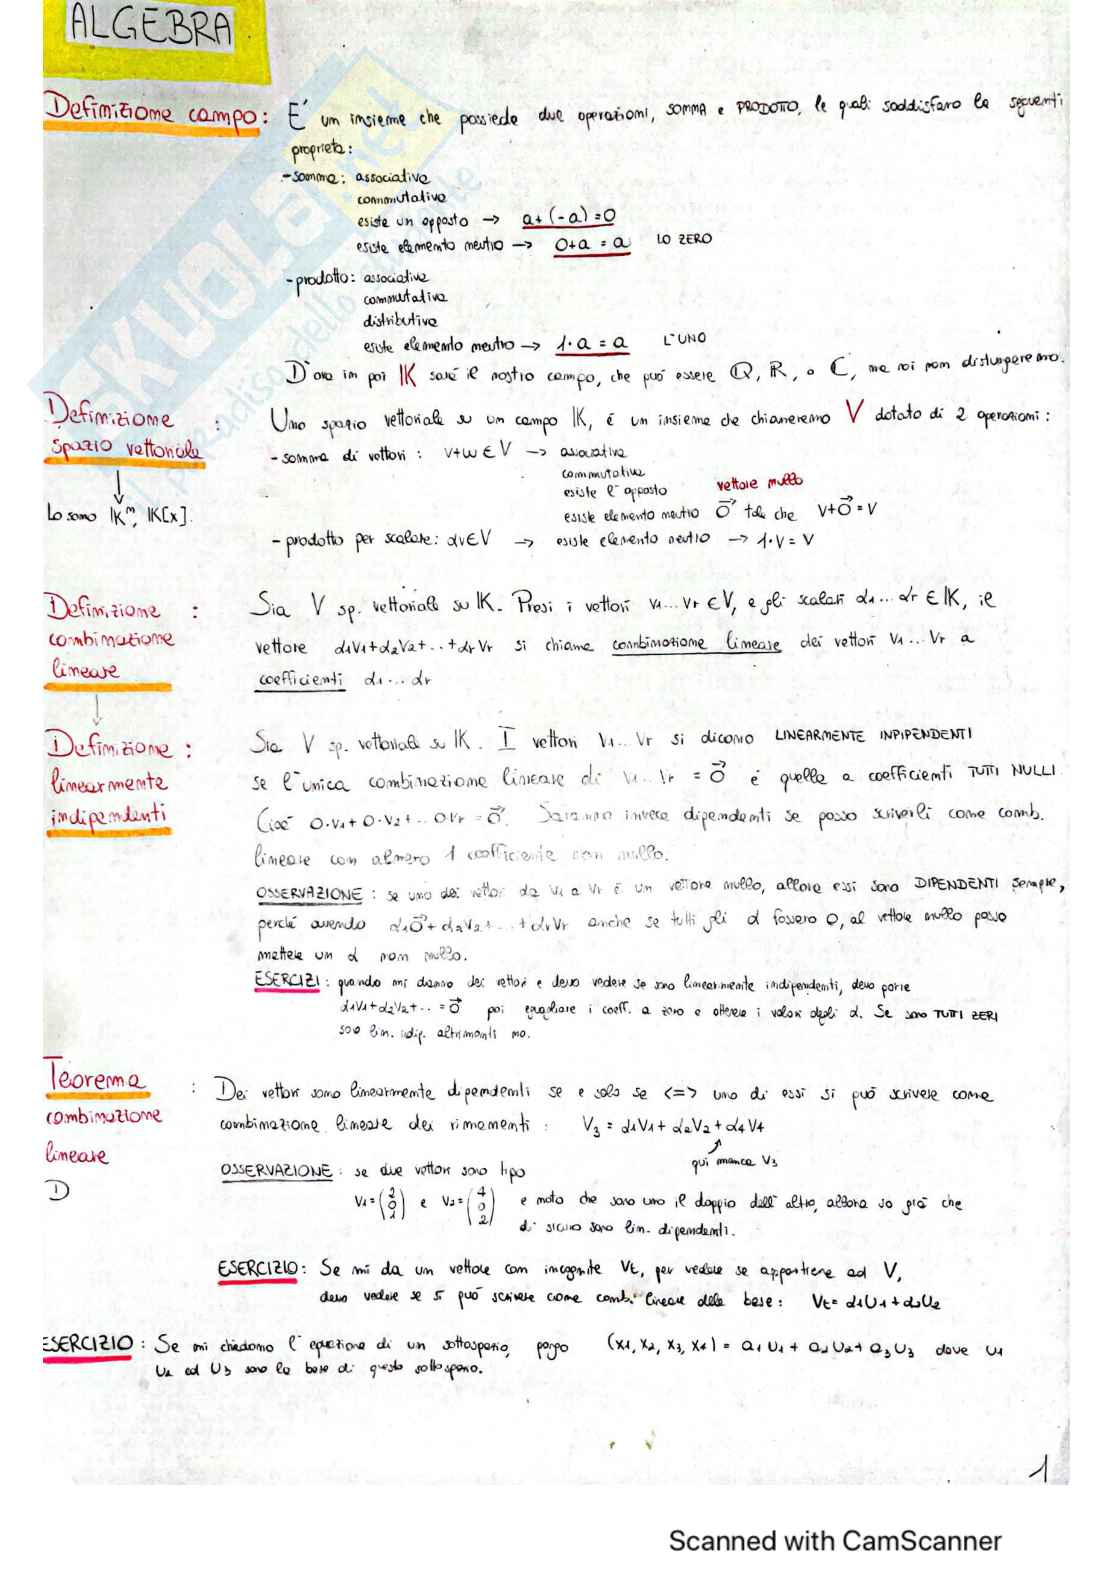 ALGEBRA
Definizione campo: E' un insieme che possiede due operazioni, SOMMA e PRODOTTO, le quali soddisfano le seguenti
proprietà:
- somma: associativa
commutativa
esiste un opposto → a+(-a)=0
esiste elemento neutro → 0+a = a LO ZERO
- prodotto: associativa
commutativa
distributiva
esiste elemento neutro → 1·a = a L'UNO
D'ora in poi IK sarà il nostro campo, che può essere Q, R, o C, ma noi non distingueremo.
Definizione spazio vettoriale : Uno spazio vettoriale su un campo IK, é un insieme che chiameremo V dotato di 2 operazioni:
- somma di vettori : v+w ∈ V → associativa
commutativa
esiste l'opposto vettore nullo
esiste elemento neutro 0⃗ tale che v+0⃗=v
Lo sono IKⁿ, IK[x].
- prodotto per scalare: αv∈V → esiste elemento neutro → 1·v = v
Definizione combinazione lineare : Sia V sp. vettoriale su IK. Presi i vettori v1...vr ∈V, e gli scalari α1...αr ∈ IK, il
vettore α1v1+α2v2+..+αrvr si chiama combinazione lineare dei vettori v1...vr a
coefficienti α1...αr
Definizione linearmente indipendenti : Sia V sp. vettoriale su IK. I vettori v1...vr si dicono LINEARMENTE INPIPENDENTI
se l'unica combinazione lineare di v1...vr = 0⃗ é quella a coefficienti TUTTI NULLI.
Cioé 0·v1+0·v2+..0vr=0⃗. Saranno invece dipendenti se posso scriverli come comb.
lineare con almeno 1 coefficiente non nullo.
OSSERVAZIONE : se uno dei vettori da v1 a vr é un vettore nullo, allora essi sono DIPENDENTI sempre,
perché avendo α10⃗+α2v2+...+αrvr anche se tutti gli α fossero 0, al vettore nullo posso
mettere un α non nullo.
ESERCIZI : quando mi danno dei vettori e devo vedere se sono linearmente indipendenti, devo porre
α1v1+α2v2+.. =0⃗ poi eguagliare i coeff. a zero e ottenere i valori degli α. Se sono TUTTI ZERI
sono lin. indip. altrimenti no.
Teorema combinazione lineare : Dei vettori sono linearmente dipendenti se e solo se <=> uno di essi si può scrivere come
combinazione lineare dei rimanenti : V3 = α1V1+α2V2+α4V4
qui manca V3
1)
OSSERVAZIONE : se due vettori sono tipo
V1=(2 0 1) e V2=(4 0 2) e noto che sono uno il doppio dell'altro, allora so già che
di sicuro sono lin. dipendenti.
ESERCIZIO : Se mi da un vettore con incognite Vt, per vedere se appartiene ad V,
devo vedere se si può scrivere come comb. lineare della base: Vt= α1U1+α2U2
ESERCIZIO : Se mi chiedono l'equazione di un sottospazio, pongo (x1, x2, x3, x4) = a1U1+a2U2+a3U3 dove U1
U2 ed U3 sono la base di questo sottospazio.
1
Scanned with CamScanner